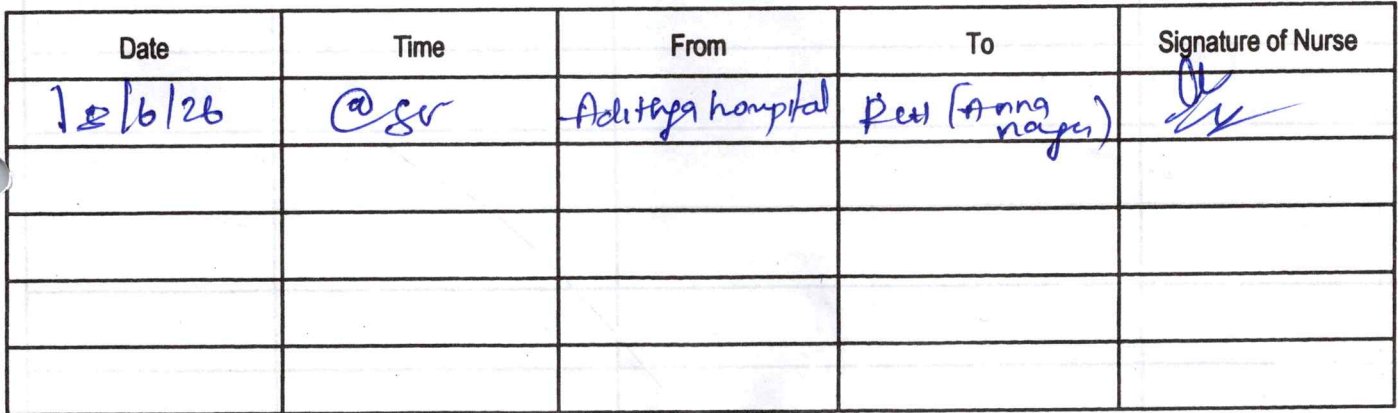 Date Time From To Signature of Nurse
/6/26 @ Adithya hospital (Anna
nagar)